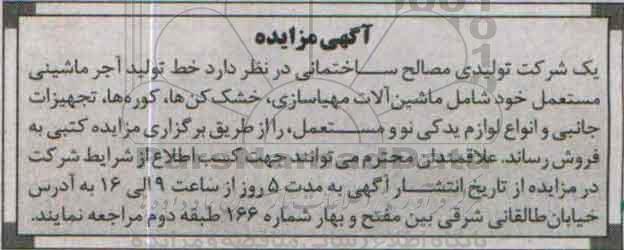 آگهی مزایده
یک شرکت تولیدی مصالح ساختمانی در نظر دارد خط تولید آجر ماشینی
مستعمل خود شامل ماشین‌آلات مهیاسازی، خشک‌کن‌ها، کوره‌ها، تجهیزات
جانبی و انواع لوازم یدکی نو و مستعمل، را از طریق برگزاری مزایده کتبی به
فروش رساند. علاقمندان محترم می‌توانند جهت کسب اطلاع از شرایط شرکت
در مزایده از تاریخ انتشار آگهی به مدت ۵ روز از ساعت ۹ الی ۱۶ به آدرس
خیابان طالقانی شرقی بین مفتح و بهار شماره ۱۶۶ طبقه دوم مراجعه نمایند.